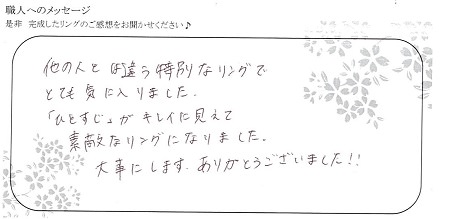 職人へのメッセージ
是非 完成したリングのご感想をお聞かせください♪
他の人とは違う特別なリングで
とても気に入りました.
「ひとすじ」が キレイに見えて
素敵なリングになりました.
大事にします. ありがとうございました!!